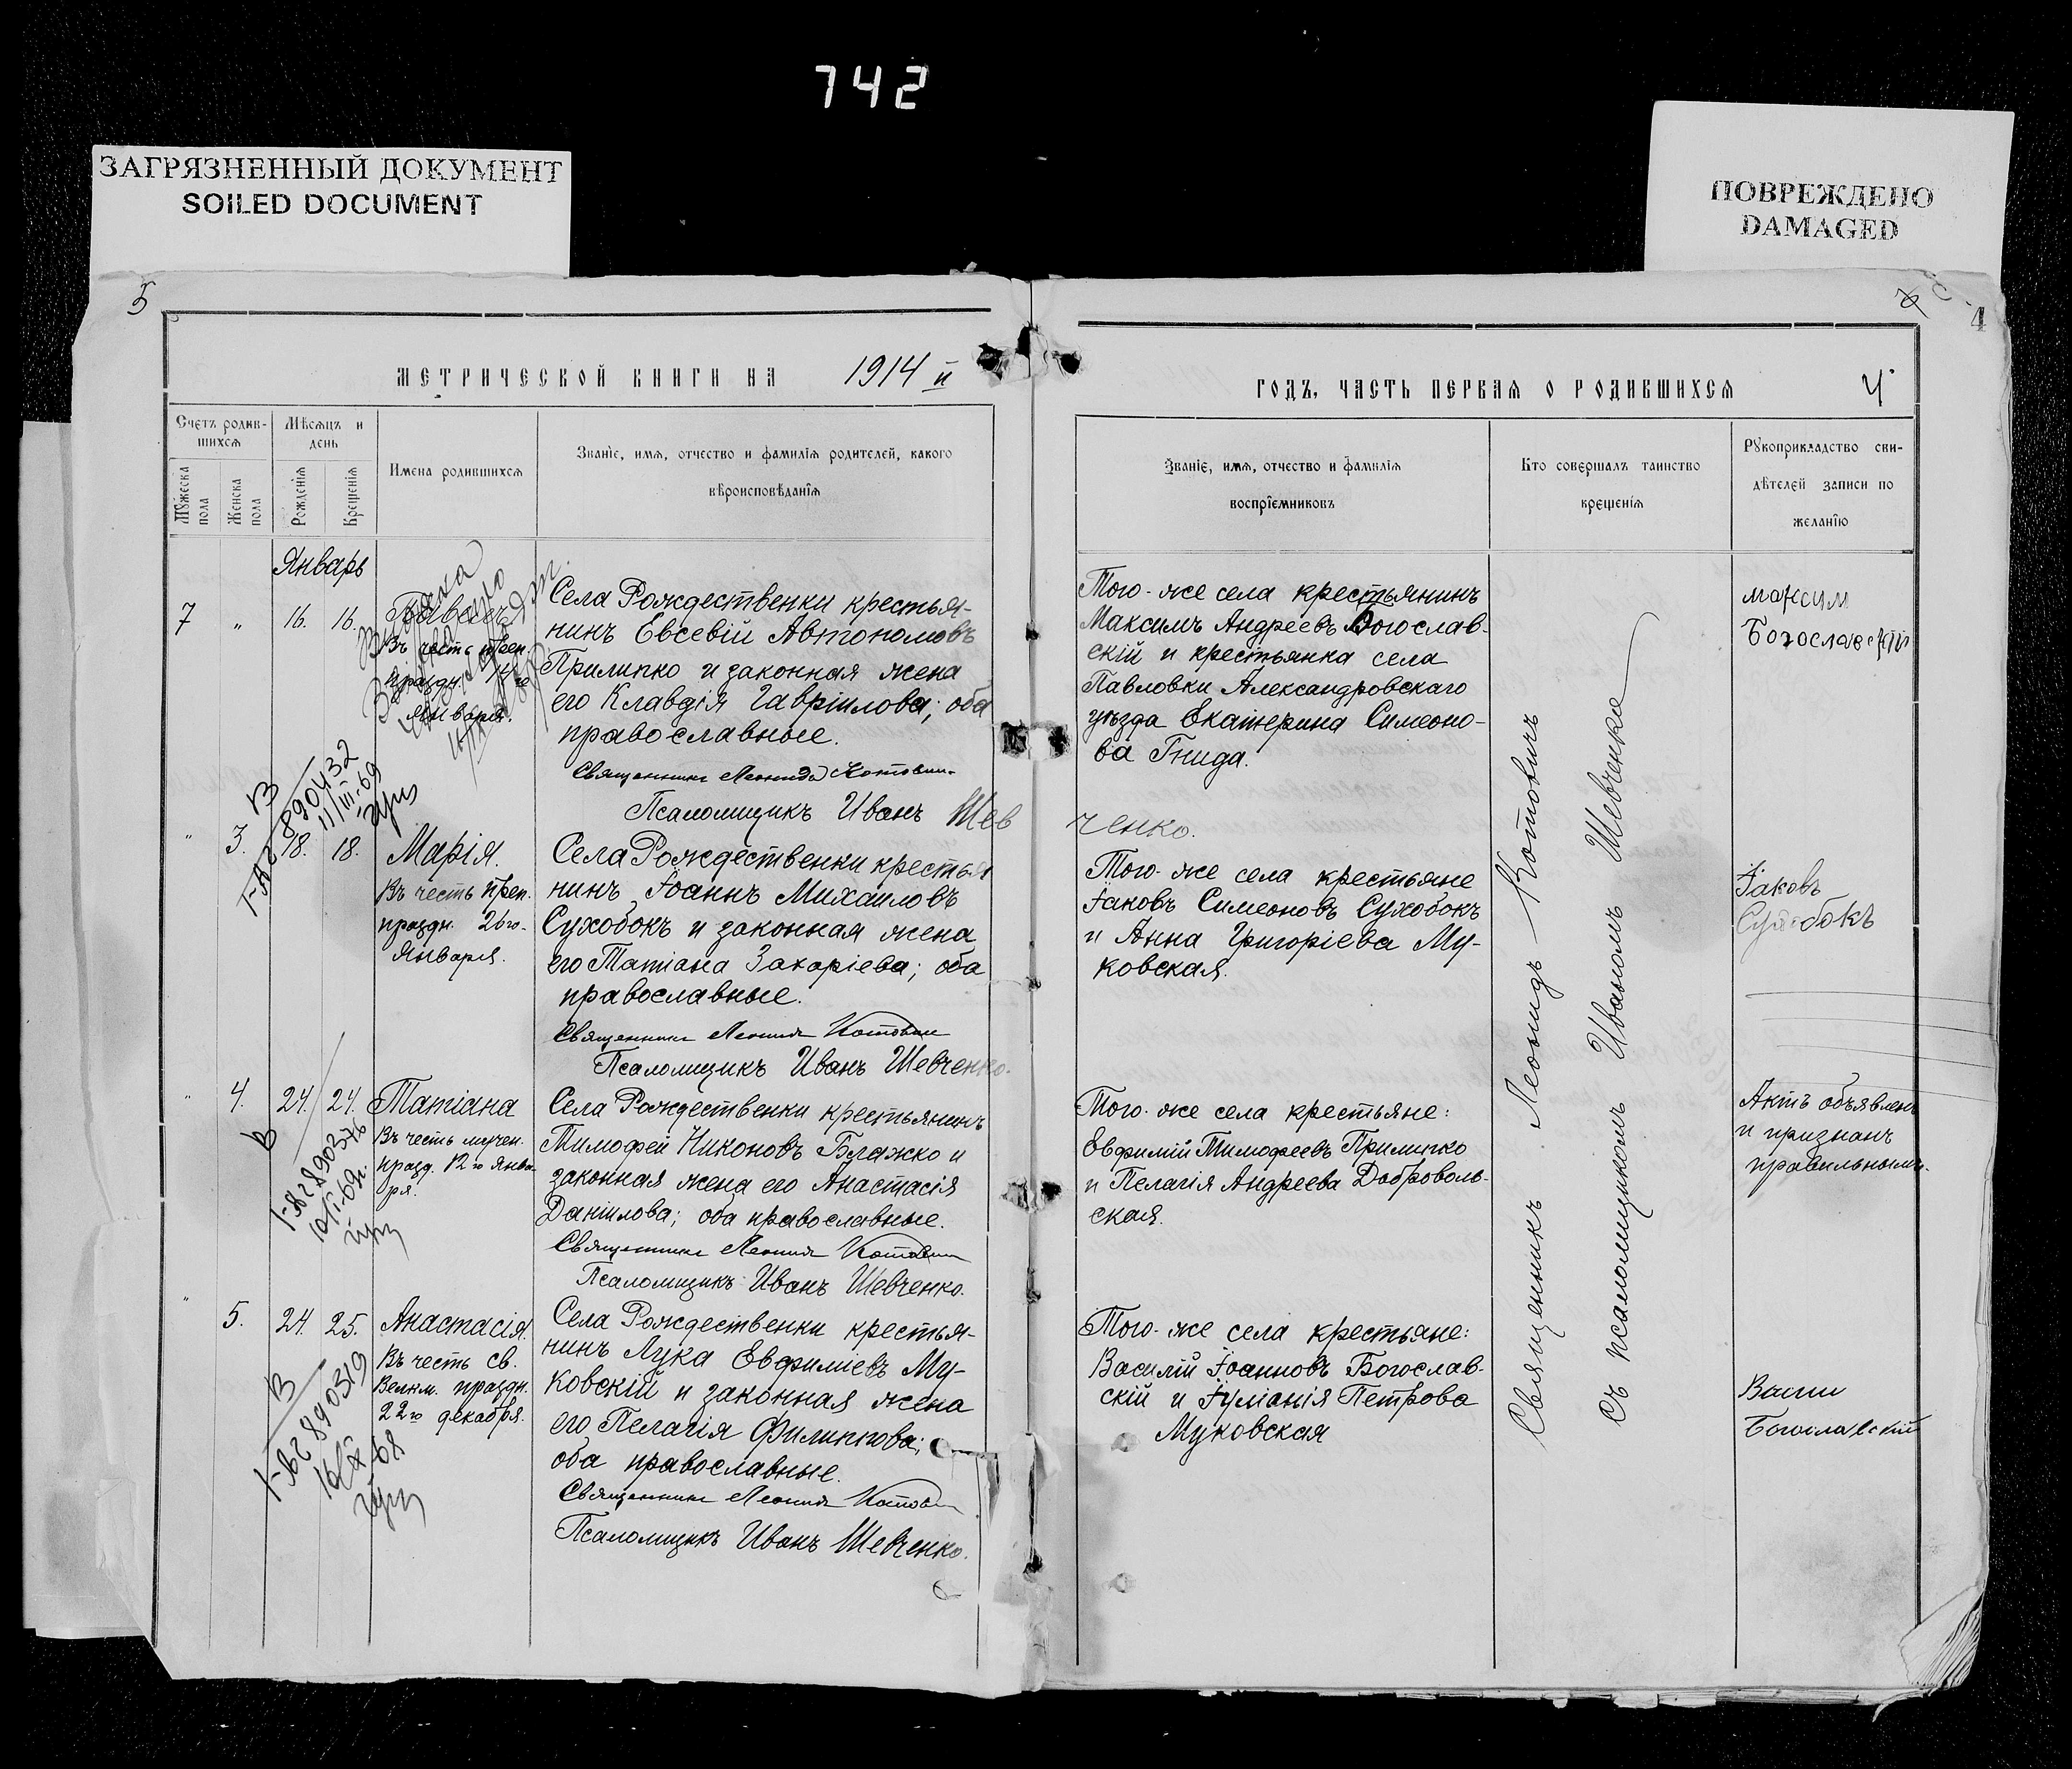 742
ЗАГРЯЗНЕННЫЙ ДОКУМЕНТ
SOILED DOCUMENT
ПОВРЕЖДЕНО
DAMAGED
5
4
МЕТРИЧЕСКОЙ КНИГИ НА 1914 й
Счетъ родив-
шихся
Мѣсяцъ и
день
Мужеска пола
Женска пола
Рожденія
Крещенія
Имена родившихся
Званіе, имя, отчество и фамилія родителей, какого
вѣроисповѣданія
Январь
7 " 16. 16. Павелъ
Въ честь преп.
праздн. 15го
января.
Села Рождественки крестья-
нинъ Евсевій Автономовъ
Прилипко и законная жена
его Клавдія Гавріилова; оба
православные.
Священникъ Леонидъ Котович
Псаломщикъ Иванъ Шев
В
890432
11/III-69
" 3. 18. 18. Марія.
Въ честь преп.
праздн. 26го
Января.
Села Рождественки крестья
нинъ Іоаннъ Михаиловъ
Сухобокъ и законная жена
его Татіана Захаріева; оба
православные.
Священникъ Леонид Котович
Псаломщикъ Иванъ Шевченко.
" 4. 24. 24. Татіана
Въ честь мучен.
празд. 12го Янва
ря.
В
Села Рождественки крестьянинъ
Тимофей Никоновъ Блажко и
законная жена его Анастасія
Даніилова; оба православные.
Священникъ Леонид Котович
Псаломщикъ Иванъ Шевченко.
" 5. 24. 25. Анастасія.
Въ честь св.
Велкм. праздн.
22го декабря.
В
890319
Села Рождественки крестья-
нинъ Лука Евфиміевъ Му-
ковскій и законная жена
его Пелагія Филиппова;
оба православные.
Священникъ Леонид Котович
Псаломщикъ Иванъ Шевченко.
ГОДЪ, ЧАСТЬ ПЕРВАЯ О РОДИВШИХСЯ
4
Званіе, имя, отчество и фамилія
воспріемниковъ
Кто совершалъ таинство
крещенія
Рукоприкладство сви-
дѣтелей записи по
желанію
Того-же села крестьянинъ
Максимъ Андреевъ Богослав-
скій и крестьянка села
Павловки Александровскаго
уѣзда Екатерина Симеоно-
ва Гнида.
ченко.
Того-же села крестьяне
Іаковъ Симеоновъ Сухобокъ
и Анна Григоріева Му-
ковская.
Того-же села крестьяне:
Евфимій Тимофеевъ Прилипко
и Пелагія Андреева Доброволь-
ская.
Того-же села крестьяне:
Василій Іоанновъ Богослав-
скій и Іуліанія Петрова
Муковская
Священникъ Леонидъ Котовичъ
съ псаломщикомъ Иваномъ Шевченко
Максим
Богославскій
Іаковъ
Сухобокъ
Актъ объявленъ
и признанъ
правильнымъ.
Васили
Богославскій